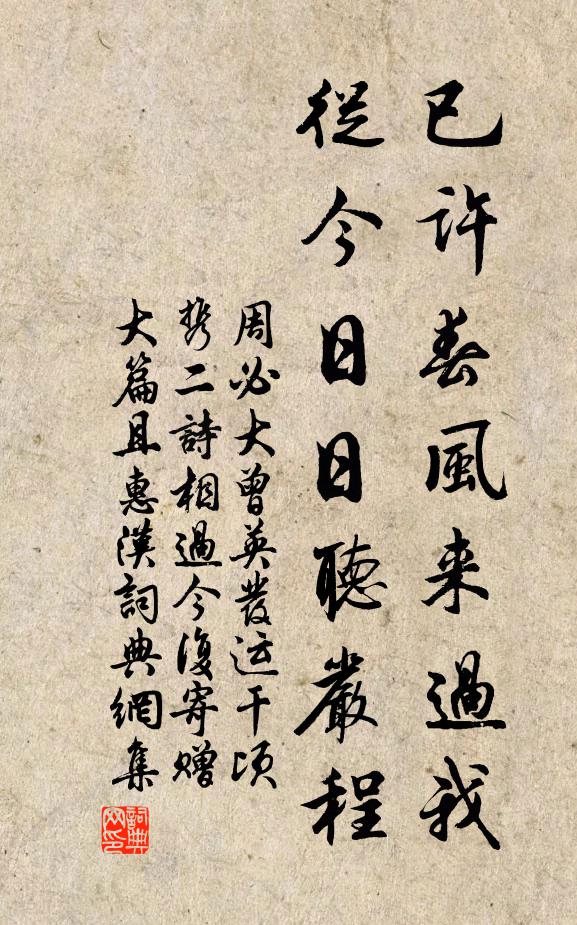 已許春風来過我
從今日日聽嚴程
周必大曾英發运干頃
携二詩相過今復寄贈
大篇且惠漢詞典網集
詞典
网印